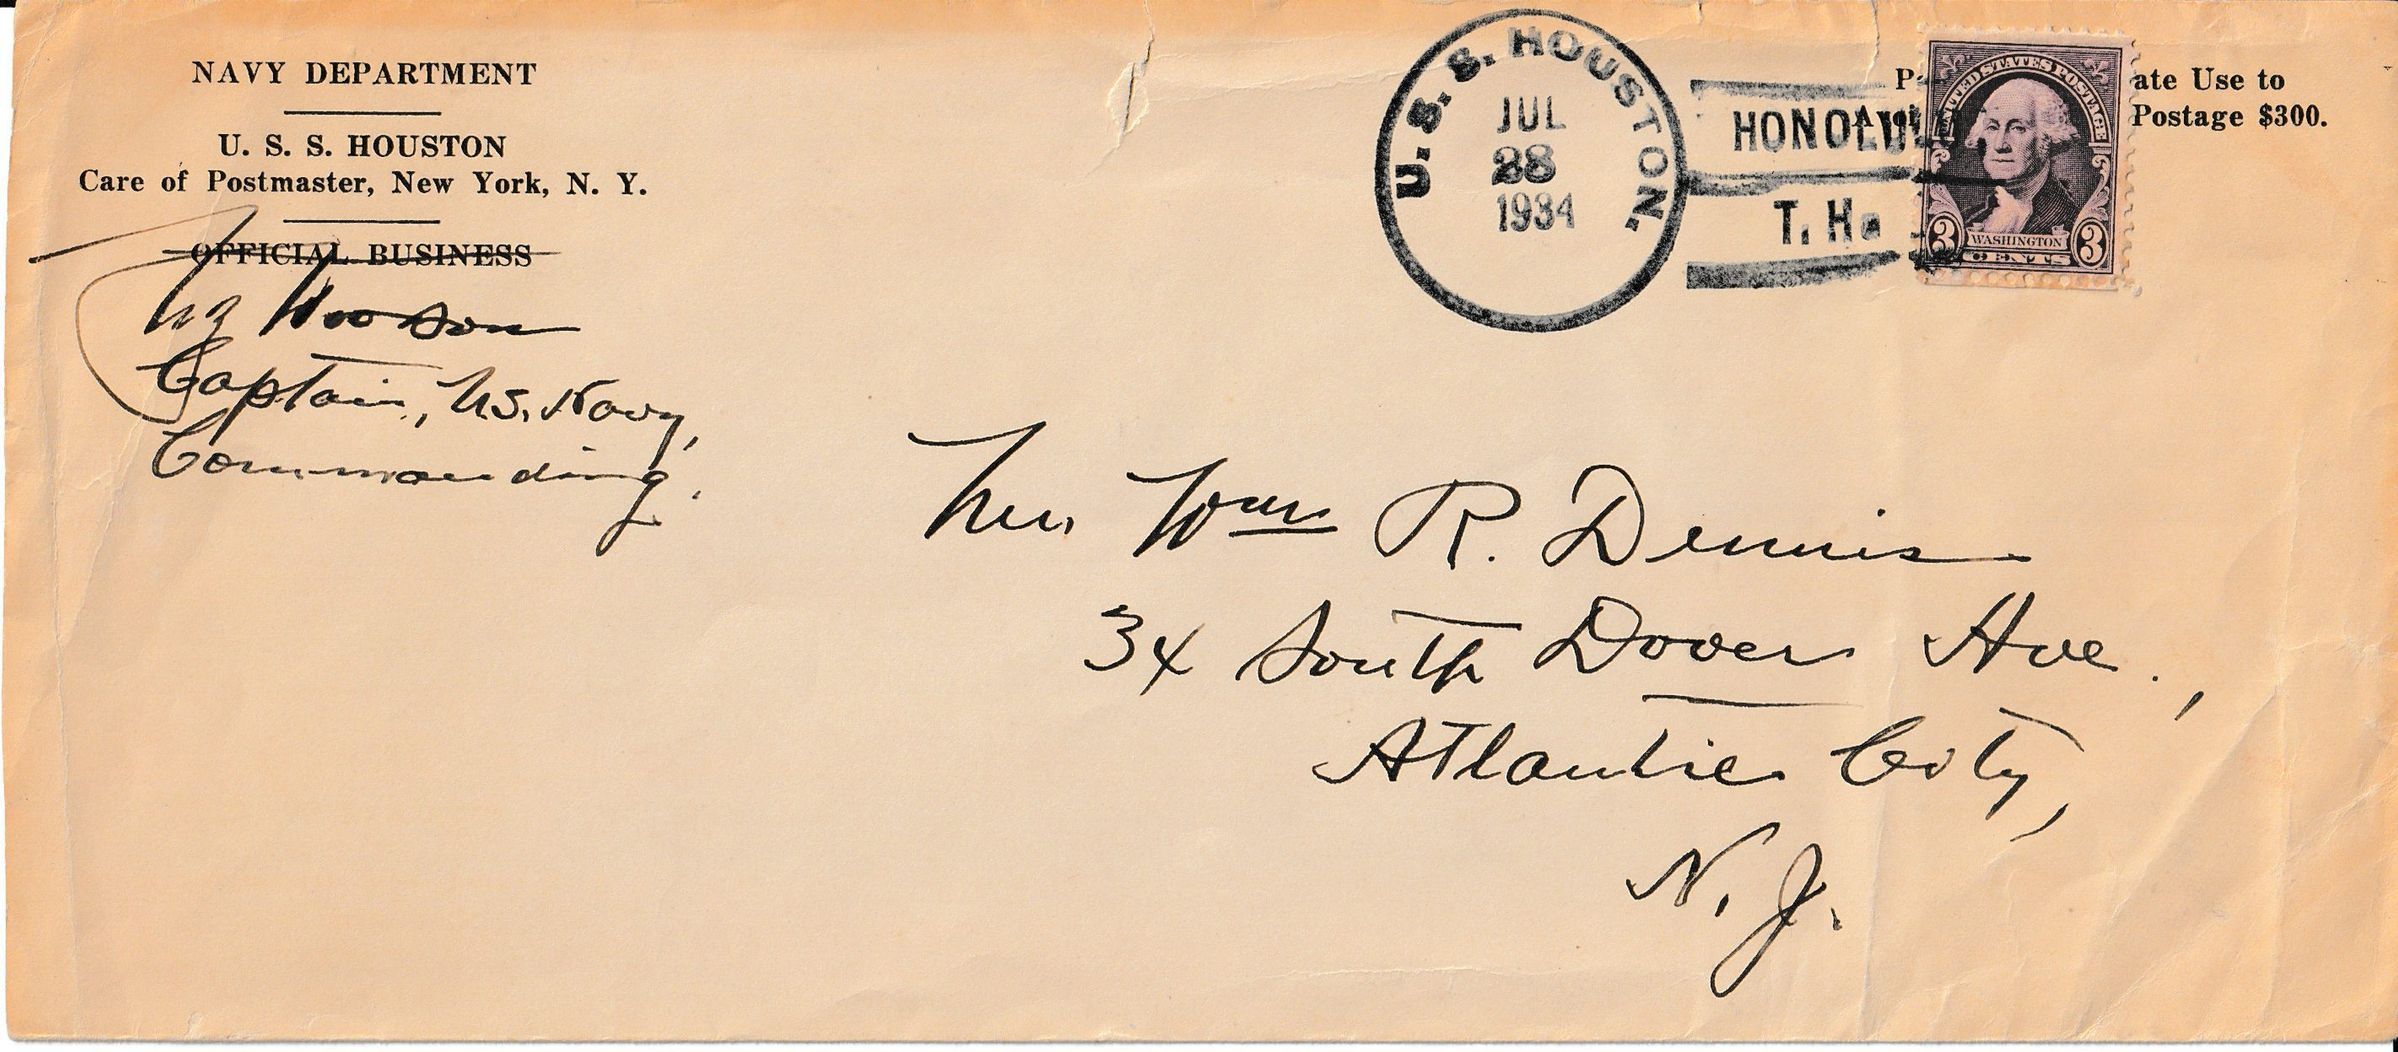 NAVY DEPARTMENT
U. S. S. HOUSTON
Care of Postmaster, New York, N. Y.
OFFICIAL BUSINESS
Captain, U.S. Navy,
Commanding.
U. S. S. HOUSTON.
JUL
28
1934
HONOLULU
T. H.
ate Use to
Postage $300.
UNITED STATES POSTAGE
3 WASHINGTON 3
CENTS
Wm R. Dennis
34 South Dover Ave.,
Atlantic City,
N. J.